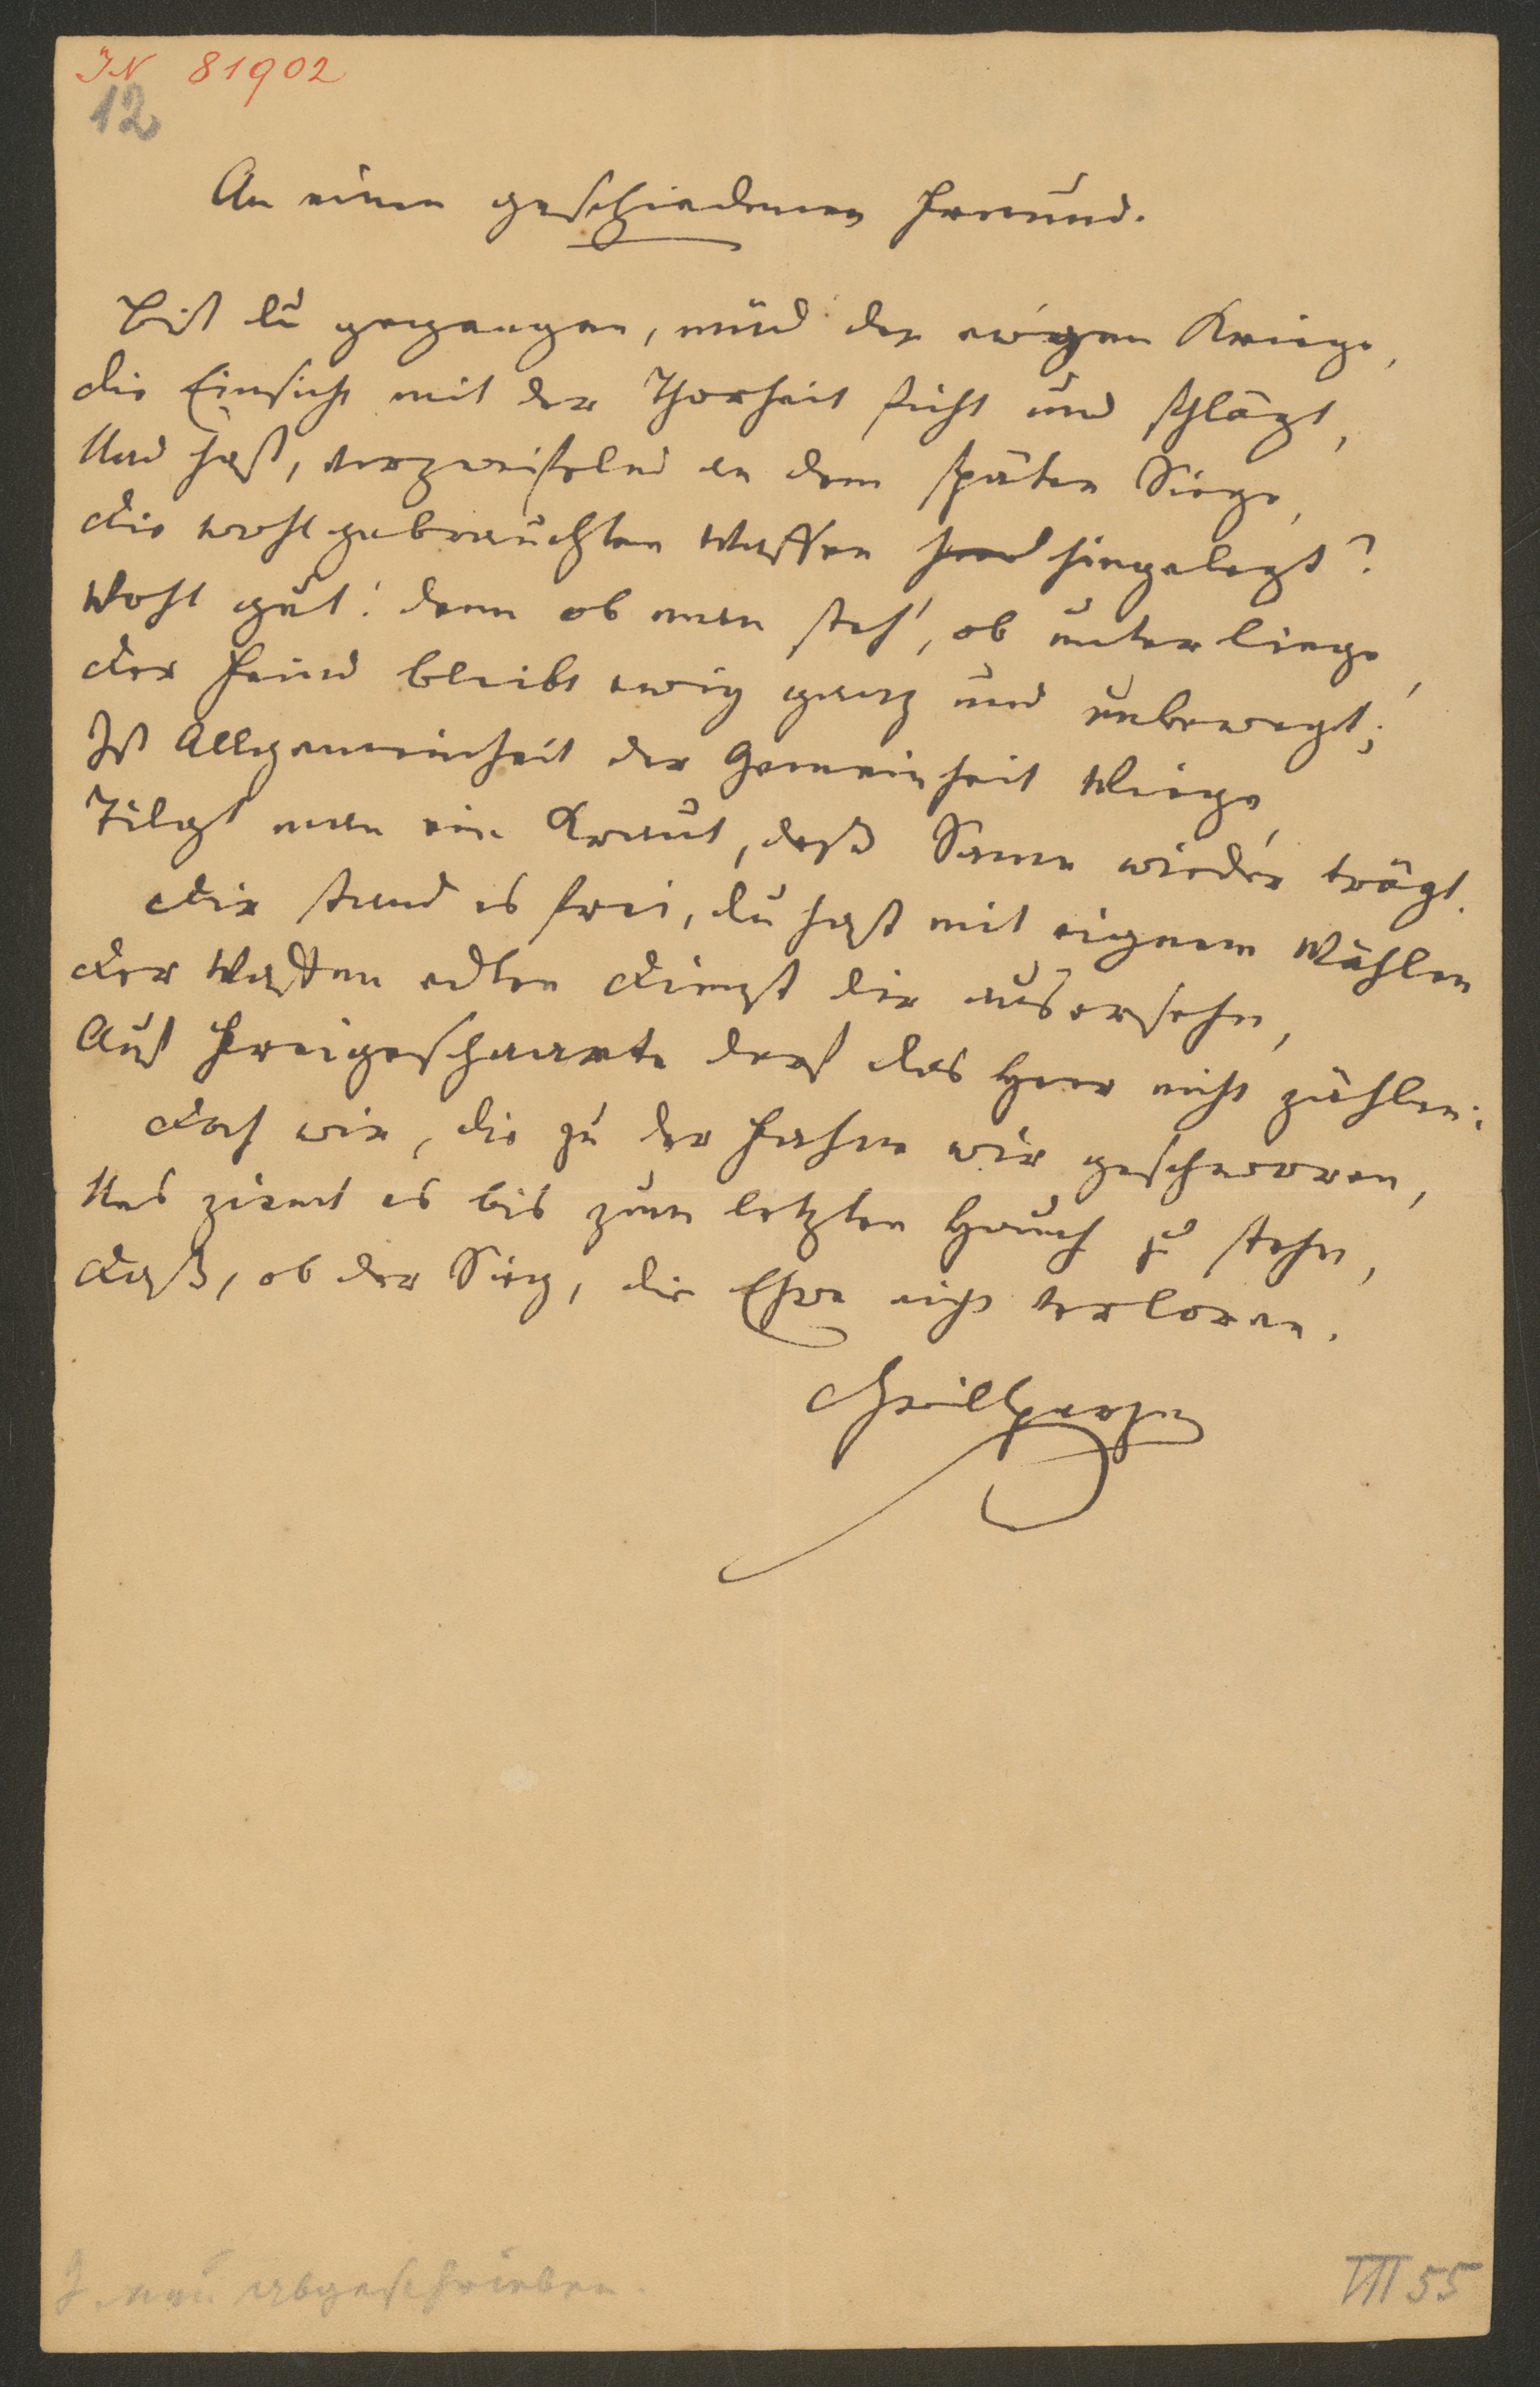 IN 81902
12
An einen geschiedenen Freund.
Bist du gegangen, müd' der ew'gen Kriege,
Die Einsicht mit der Thorheit ficht und schlägt,
Und hast, verzweifelnd an dem späten Siege,
Die wohlgebrauchten Waffen hingelegt?
Wohl gut! denn ob man steh', ob unterliege,
Der Feind bleibt ewig ganz und unbewegt;
Ist Allgemeinheit der Gemeinheit Wiege,
Tilgt man ein Kraut, deß Same wieder trägt.
Dir stand es frei, du hast mit eignem Wählen
Der Waffen edlen Dienst dir ausersehn,
Auf Freigeschaarte darf das Heer nicht zählen;
Doch wir, die zu der Fahne wir geschworen,
Uns ziemt es bis zum letzten Hauch zu stehn,
Daß, ob der Sieg, die Ehre nicht verloren.
Grillparzer
neu abgeschrieben.
VII 55